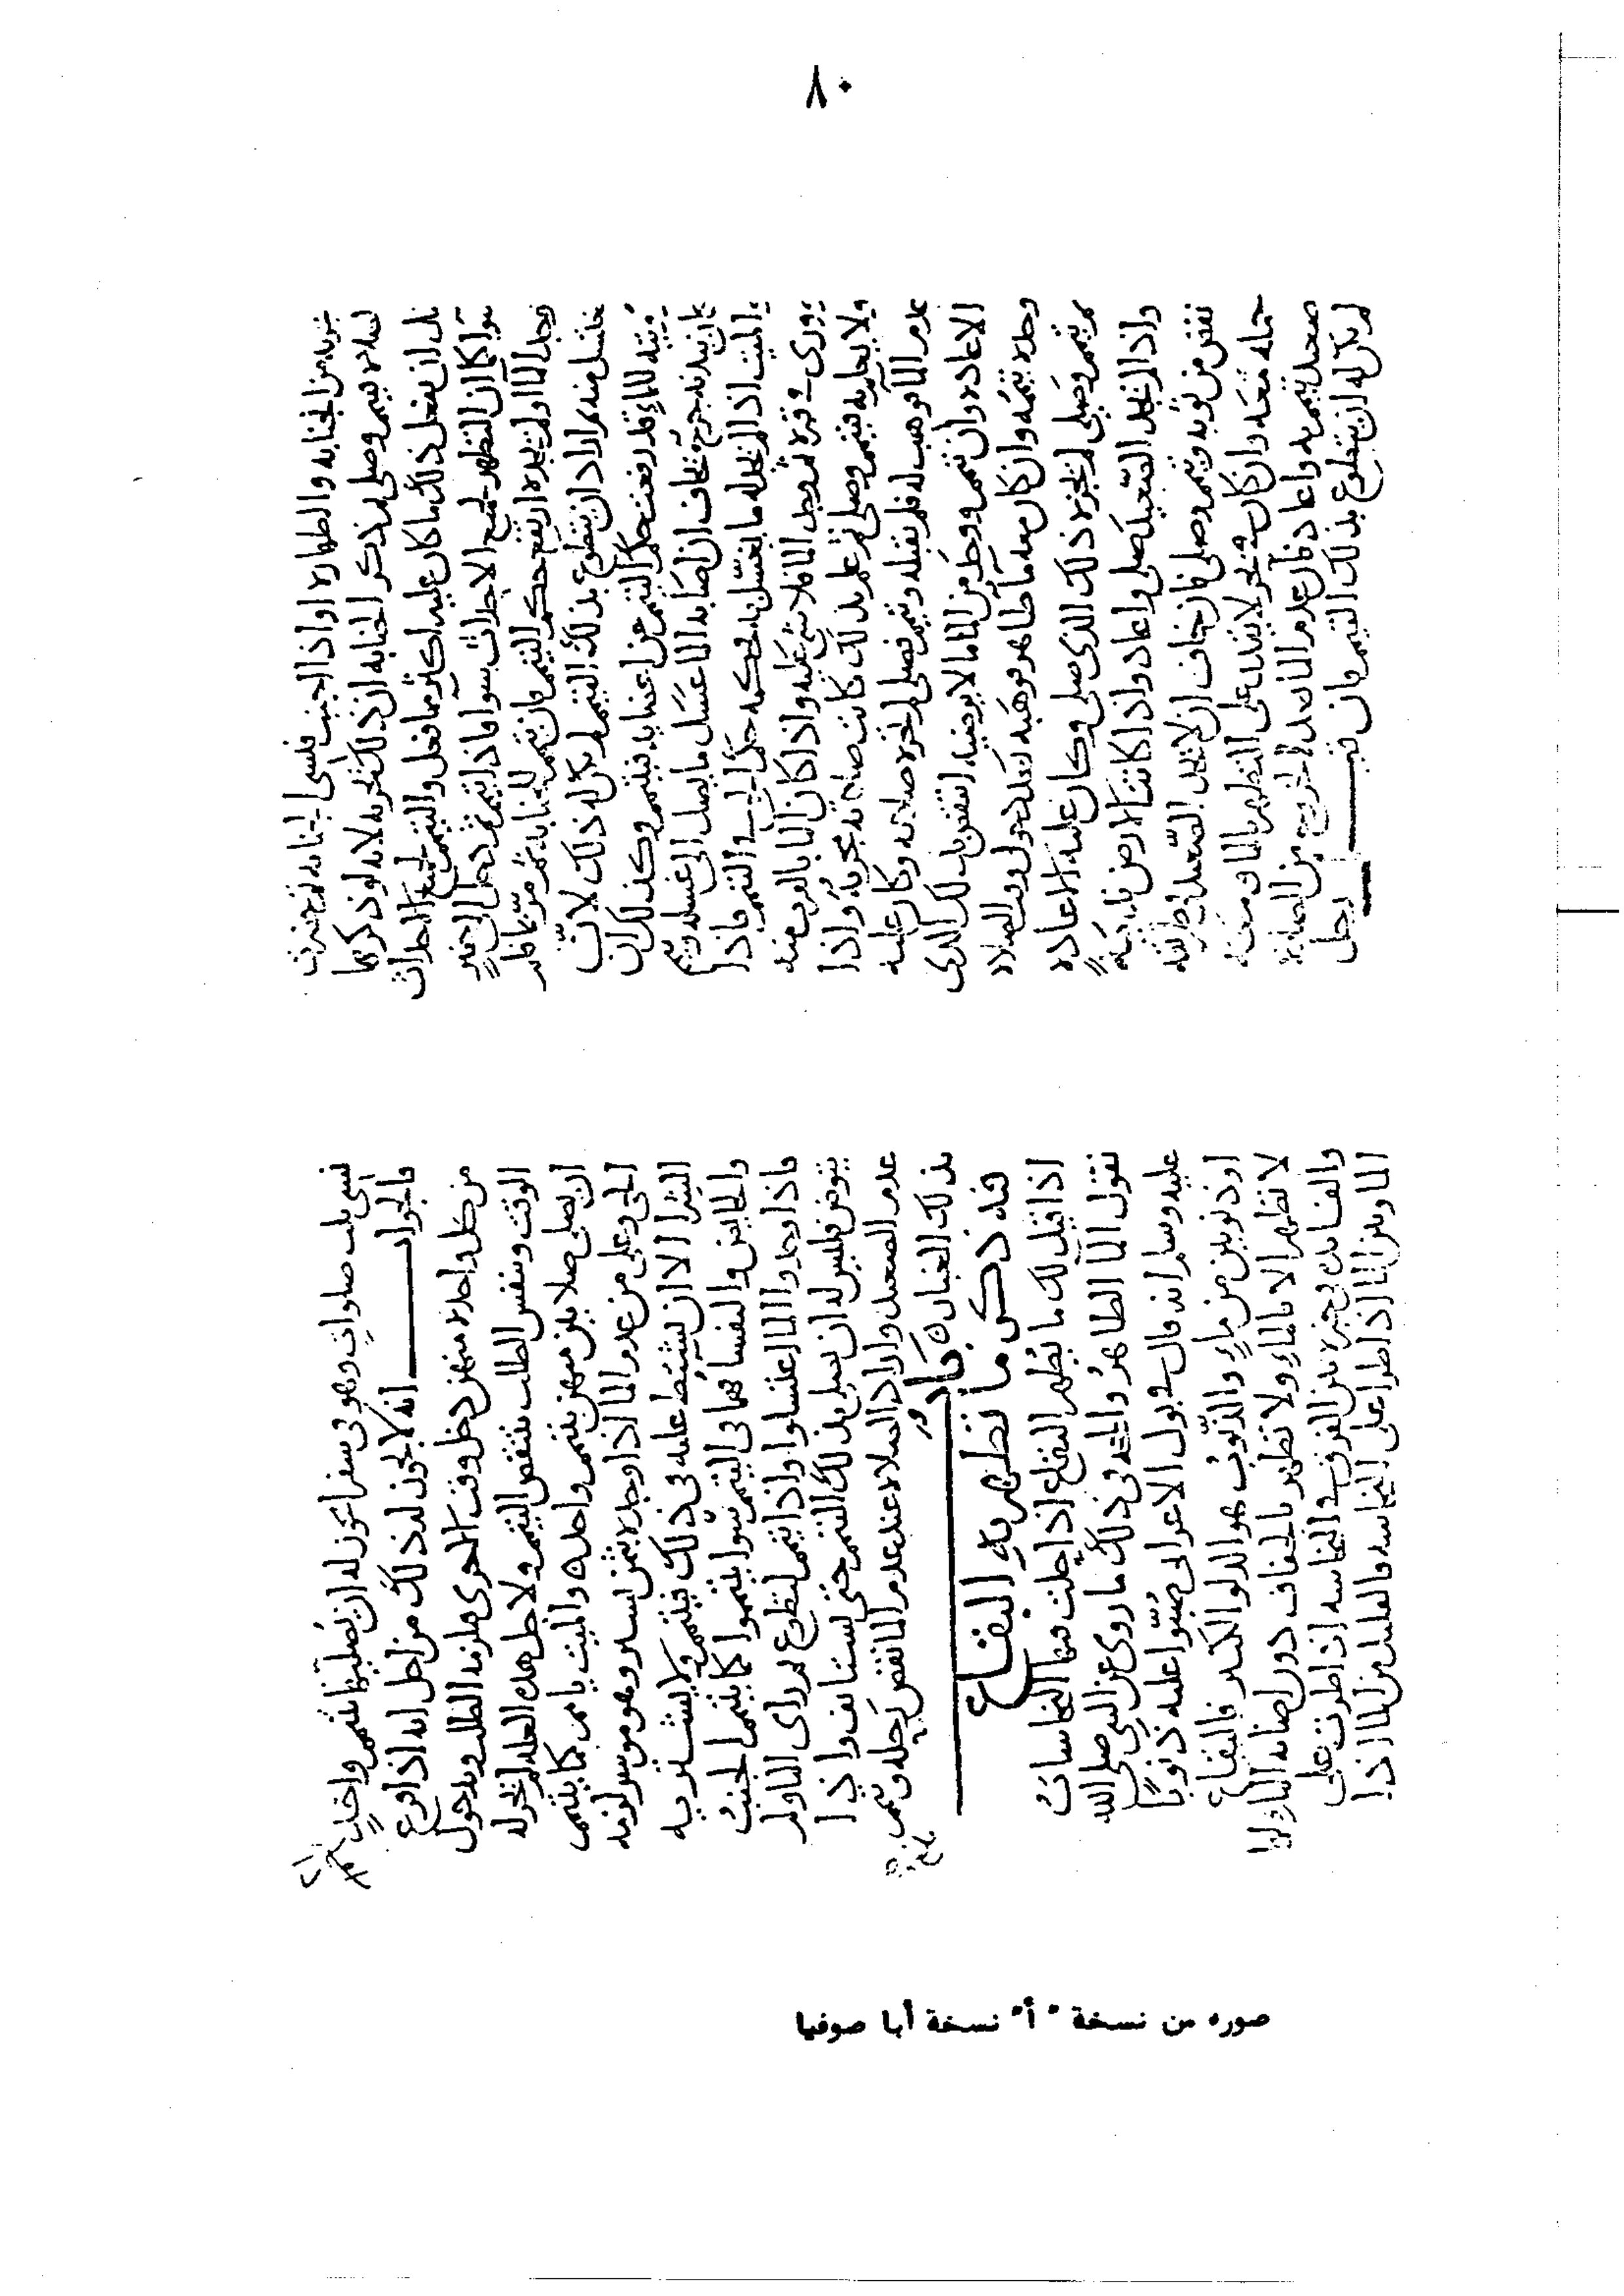 ٨٠
من الجنابه والطهاره او اذا اجنب فنسى الجنابه ثم احدث
تيمم وصلى ثم ذكر الجنابه ان ذلك يجزيه لانه لو ذكرهما
ان يفعل ذلك ما كان عليه اكثر مما فعل والتيمم لجميع الاحداث
سوا كما ان التطهر لجميع الاحداث سوا فاذا تيمم ثم دخل في
وجد الما او لم يجده ارتفع حكم التيمم فان تيمم للجنابه ثم مر بما فلم
يغتسل منه ثم اراد ان يتطوع بذلك التيمم لم يكن له ذلك لان
للماء قد رفعت حكم التيمم عن اعضايه فيتيمم وكذلك ان
كان ببدنه جرح يخاف ان اصابه الما غسل ما يصل الى غسله وتيمم
الميت اذا لم نجد له ما نغسل به فحكمه حكم الحي في التيمم فاذا
ووري في قبره ثم وجد الما فلا شي عليه واذا كان الما بالقرب منه
ولا يعلم به فتيمم وصلى ثم علم بذلك كانت صلاته مجزيه واذا
عدم الما فوهب له فلم يقبله وتيمم فصلى لم تجزه صلاته وكان عليه
الاعاده وان تيمم ووجد من الما ما لا يوضيه انتقض بذلك الذي
وجده تيممه وان كان معه ما طاهر فوهبه بعد دخول وقت الصلاه
ثم تيمم وصلى لم تجزه ذلك الذي صلى وكان عليه الاعاده
واذا لم يجد الصعيد صلى واعاد واذا كانت الارض
نفض من ثوبه وتيمم وصلى فان خاف ان لا يجد الصعيد في طريقه
حمله معه وان كان في بحر لا يقدر على التطهر بالما
صعيد تيمم به واعاد فان عدم الما بعد الخروج من
لم يكن له ان يتطوع بذلك التيمم فان قيل رجل
نسي صلوات وهو في سفر اعوز له ان يصليها بتيمم واحد
فالجواب انه لا يجوز له ذلك من اجل انه اذا فرغ
من كل واحده منهن دخل وقت الاخرى فلزمه الطلب وبدخول
الوقت ونفس الطلب ينتقض التيمم ولاجل هذه العله لم يجز له
ان يصلي صلاتين منهن بتيمم واحد والميت ييمم كما يتيمم
الحي وعلى من عدم الما اذا وجده بثمن ان يشتريه وهو موسر لزمه
الشرا الا ان يشتط عليه في ذلك فيتيمم ولا يشتريه
والحايض والنفسا هما في التيمم سوا يتيمموا كما يتيمم الجنب
فاذا وجدوا الما اغتسلوا واذا تيمم لتطوع ثم راى الما ولم
يتوض فليس له ان يصلي بذلك التيمم حتى يستانف واذا
عدم الصعيد واراد الصلاه عند عدم الما نفض رحله وتيمم
بذلك الغبار باب
فيه ذكر ما تطهر به البقاع
اذا قيل لك ما يطهر البقاع اذا حلت فيها النجاسات
تقول الما الطاهر والحجه في ذلك ما روى عن النبي صلى الله
عليه وسلم انه قال في بول الاعرابي صبوا عليه ذنوبا
او ذنوبين من ماء والذنوب هو الدلو الكبير فالبقاع
لا تطهر الا بالماء ولا تطهر بالجفاف دون اصابه الماء لها
والفصل بين الفرق في النجاسه اذا طرت على
الما وبين الما اذا طرا على النجاسه والقليل من الما اذا
صوره من نسخة " أ" نسخة أيا صوفيا